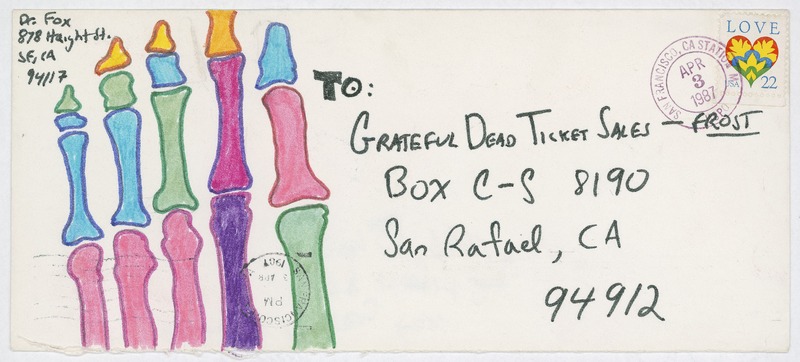 Dr. Fox
878 Haight St.
SF, CA
94117
TO:
GRATEFUL DEAD TICKET SALES — FROST
BOX C-S 8190
San Rafael, CA
94912
LOVE
USA 22
SAN FRANCISCO, CA STATION
APR
3
1987
PM
3 APR
1987